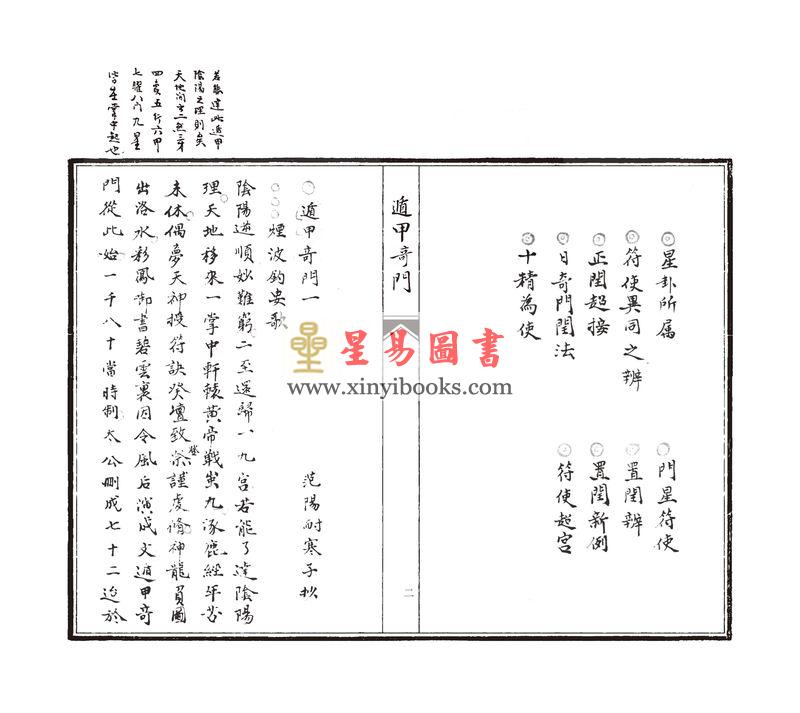 若能達此遁甲
陰陽之理則
天地間
四象五行六甲
七曜八門九星
皆在掌中起也
◎星卦所属 ◎門星符使
◎符使異同之辨 ◎置閏辨
◎正閏超接 ◎置閏新例
◎日奇門閏法 ◎符使起宮
◎十精為使
遁甲奇門 二
○遁甲奇門一 范陽耐寒子抄
○○○煙波釣叟歌
陰陽逆順妙難窮二至還歸一九宮若能了達陰陽
理天地移來一掌中軒轅黃帝戰蚩尤涿鹿經年苦
未休偶夢天神授符訣癸登壇致祭謹虔脩神龍負圖
出洛水彩鳳御書碧雲裏因令風后演成文遁甲奇
門從此始一千八十當時制太公刪成七十二迨於
星易圖書
www.xinyibooks.com